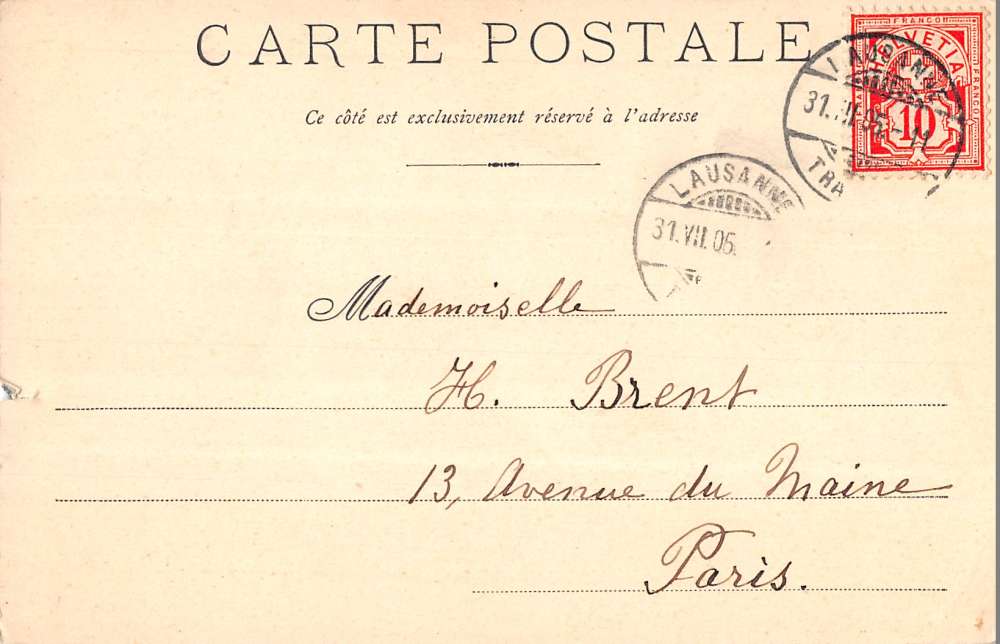 CARTE POSTALE
Ce côté est exclusivement réservé à l'adresse
FRANCO
FRANCO
HELVETIA
10
LAUSANNE
31.VII.05.-11
TRA
LAUSANNE
31.VII.05.
Mademoiselle
H. Brent
13, Avenue du Maine
Paris.